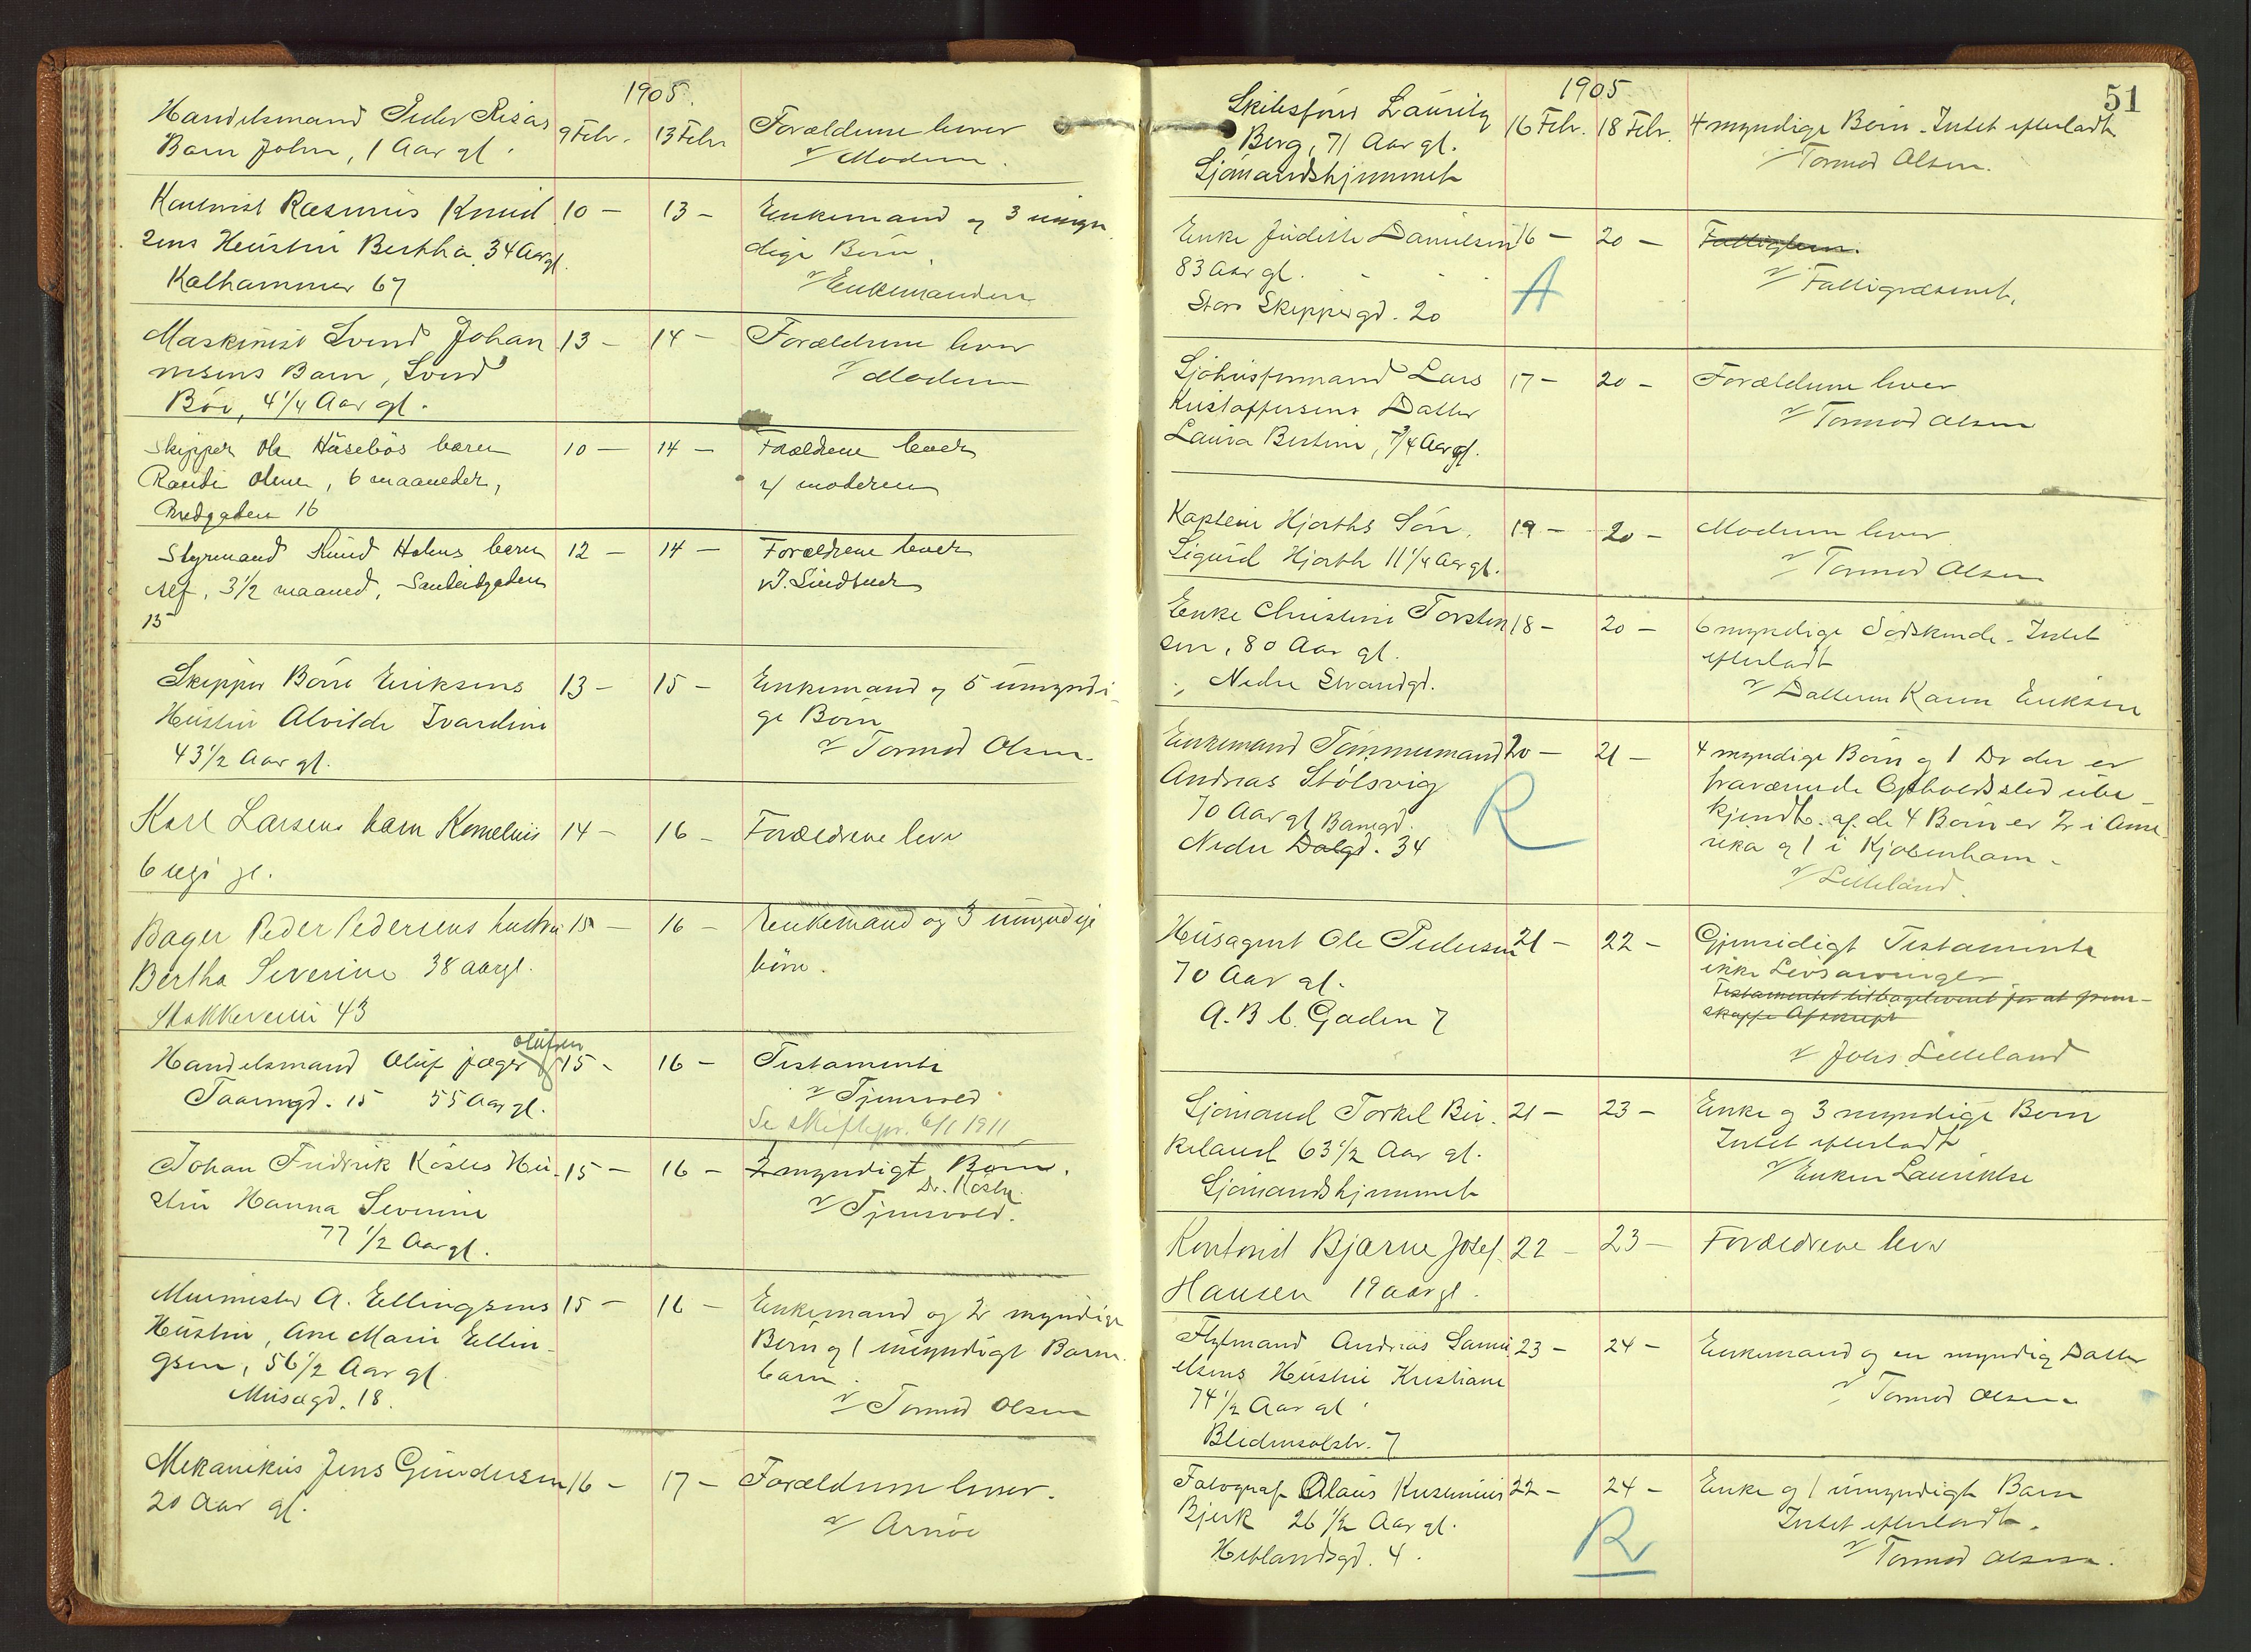 1905.
Handelsmand Peder Risas
Barn John, 1 Aar gl.
9 Febr.
13 Febr
Forældrene lever
v/ Moderen.
Rasmus Knud
sens Hustru Berthha 34 Aar gl.
Kalhammer 67
10 —
13 —
Enkemand og 3 umyn
dige Børn.
v/ Enkemanden
Maskinist Svend Johan
nesens Barn, Svend
Böe, 4 1/4 Aar gl.
13 —
14 —
Forældrene lever
v/ Moderen
Skipper Ole Håsebös barn
6 maaneder,
Bredgaden 16
10 —
14 —
Forældrene lever
v/ moderen
Styrmand Knud Holms barn
Alf, 3 1/2 maaned,
15
12 —
14 —
Forældrene lever
v/ J. Lindtner
Skipper Börre Eriksens
Hustru Alvilde Ivardine
43 1/2 Aar gl.
13 —
15 —
Enkemand og 5 umyndi
ge Børn
v/ Tormod Olsen.
Karl Larsens barn Kornelius
6 uger gl.
14 —
16 —
Forældrene lever
Bager Peder Pedersens hustru
Bertha Severine 38 aargl.
Stokkeveien 43
15 —
16 —
Enkemand og 3 umyndige
börn.
Handelsmand Oluf Jæger Olufsen
Taarngd. 15 55 Aar gl.
15 -
16 —
Testamente
v/ Tjensvold
Se skiftepr. 6/1 1911
Johan Fredrik Kösters Hu-
stru Hanna Severine
77 1/2 Aar gl.
15 —
16 —
myndigt Barn.
Dr. Köster
v/ Tjensvold.
Murmester A. Ellingsens
Hustru, Ane Marie Ellin-
gsen, 56 1/2 Aar gl
Musegd. 18.
15 —
16 —
Enkemand og 2 myndige
Børn og 1 umyndigt Barne
barn.
v/ Tormod Olsen
Mekanikus Jens Gundersen
20 Aar gl.
16 —
17 —
Forældrene lever.
v/ Arnöe
1905
51
Skibsförer Lauritz
Berg, 71 Aar gl.
Sjömandshjemmet
16 Febr.
18 Febr.
4 myndige Børn. Intet efterladt
v/ Tormod Olsen.
Enke Judithe Danielsen
83 Aar gl.
Store Skippergd. 20
16 —
20 —
A
Fattiglem.
v/ Fattigvæsenet.
Sjöhusformand Lars
Kristoffersens Datter
Laura Bertine, 3/4 Aar gl.
17 —
20 —
Forældrene lever
v/ Tormod Olsen
Kaptein Hjorths Sön,
Sigurd Hjorth 11 1/4 Aar gl.
19 —
20 —
Moderen lever
v/ Tormod Olsen
Enke Christine Torsten
sen, 80 Aar gl.
Nedre Strandgd.
18 —
20 —
6 myndige Sødskende. Intet
efterladt
v/ Datteren Karen Eriksen
Enkemand Tømmermand
Andreas Stölsvig
70 Aar gl Banegd.
Nedre Dalgd. 34
20 —
21 —
R
4 myndige Børn og 1 Do der er
fraværende Opholdssted ube-
kjendt. af de 4 Børn er 2 i Ame
rika og 1 i Kjøbenhavn.
v/ Lilleland.
Husagent Ole Pedersen
70 Aar gl.
A.B.C. Gaden 7
21 —
22 —
Gjensidigt Testamente
ikke Livsarvinger
Testamentet tilbageleveret for at frem-
skaffe Afskrift
v/ Johs. Lilleland
Sjömand Torkel Bir-
keland 63 1/2 Aar gl.
Sjömandshjemmet
21 —
23 —
Enke og 3 myndige Børn
Intet efterladt
v/ Enken
Kontorist Bjarne Josef
Hansen 19 aar gl.
22 —
23 —
Forældrene lever
Flytmand Andreas Samu
elsens Hustru Kristiane
74 1/2 Aar gl.
Bledensolstr. 7
23 —
24 —
Enkemand og en myndig Datter
v/ Tormod Olsen
Fotograf Olaus
Bjerk 26 1/2 Aar gl.
Hetlandsgd. 4.
22 —
24 —
R
Enke og 1 umyndigt Barn
Intet efterladt.
v/ Tormod Olsen.